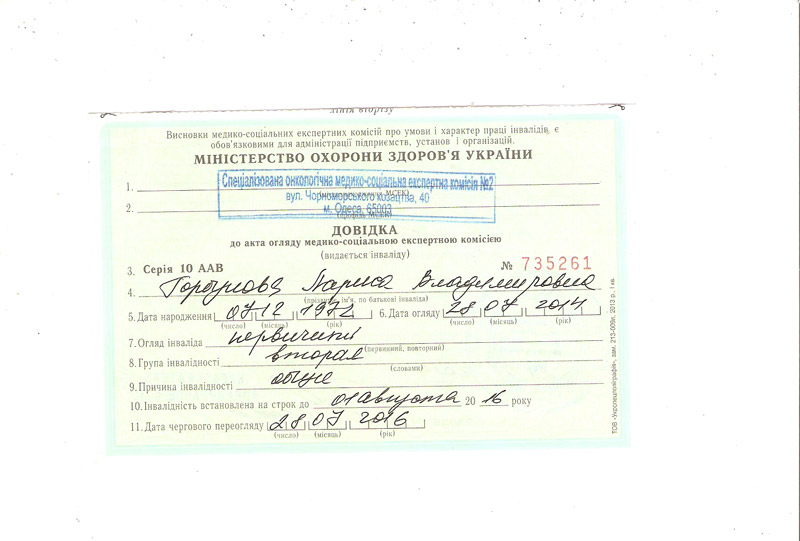 лінія відрізу
Висновки медико-соціальних експертних комісій про умови і характер праці інвалідів є
обов'язковими для адміністрації підприємств, установ і організацій.
МІНІСТЕРСТВО ОХОРОНИ ЗДОРОВ'Я УКРАЇНИ
1. Спеціалізована онкологічна медико-соціальна експертна комісія №2
вул. Чорноморського козацтва, 40
2. м. Одеса, 65003
ДОВІДКА
до акта огляду медико-соціальною експертною комісією
(видається інваліду)
3. Серія 10 ААВ № 735261
4. Лариса Владимировна
(прізвище, ім'я, по батькові інваліда)
5. Дата народження 07 12 1972 6. Дата огляду 28 07 2014
(число) (місяць) (рік) (число) (місяць) (рік)
7. Огляд інваліда
(первинний, повторний)
8. Група інвалідності вторая
(словами)
9. Причина інвалідності
10. Інвалідність встановлена на строк до 01 августа 20 16 року
11. Дата чергового переогляду 28 07 2016
(число) (місяць) (рік)
ТОВ «Укрспецполіграфія», зам. 213-009г, 2013 р., І кв.